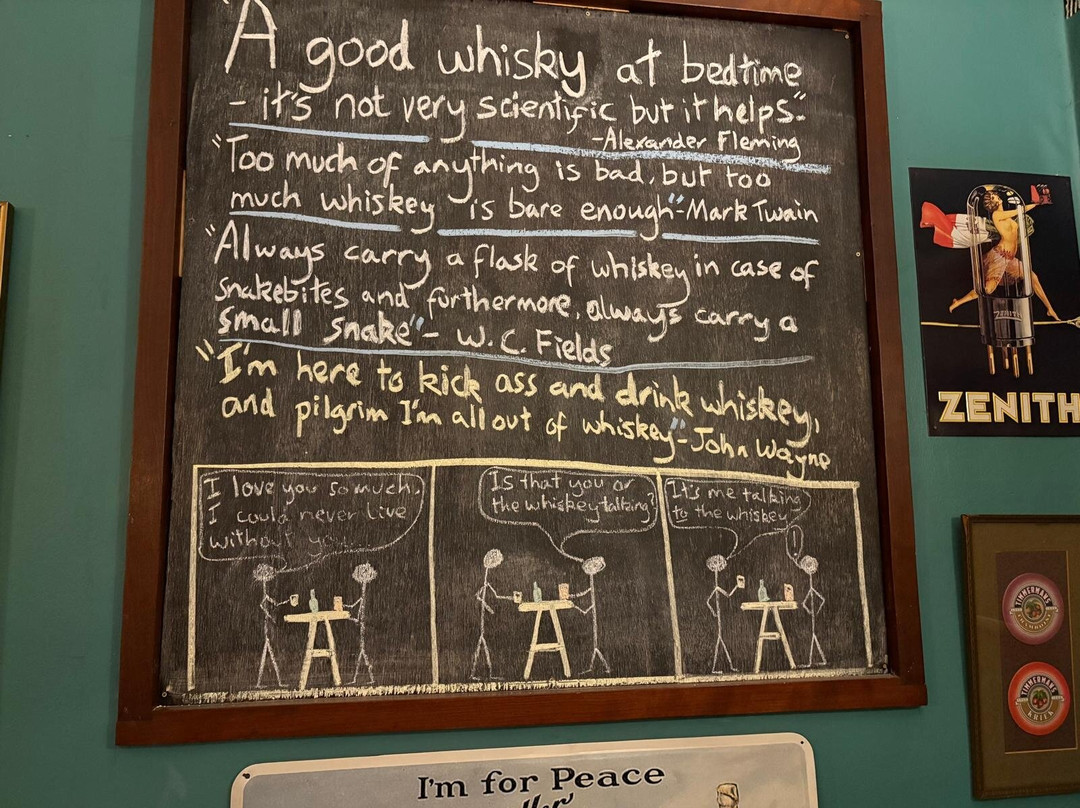 "A good whisky at bedtime
- it's not very scientific but it helps."
-Alexander Fleming
"Too much of anything is bad, but too
much whiskey is bare enough"-Mark Twain
"Always carry a flask of whiskey in case of
snakebites and furthermore, always carry a
small snake"- W.C. Fields
"I'm here to kick ass and drink whiskey,
and pilgrim I'm all out of whiskey"-John Wayne
I love you so much,
I could never live
without you...
Is that you or
the whiskey talking?
It's me talking
to the whiskey
!
ZENITH
ZENITH
TIMMERMANS
TIMMERMANS
KRIEK
I'm for Peace